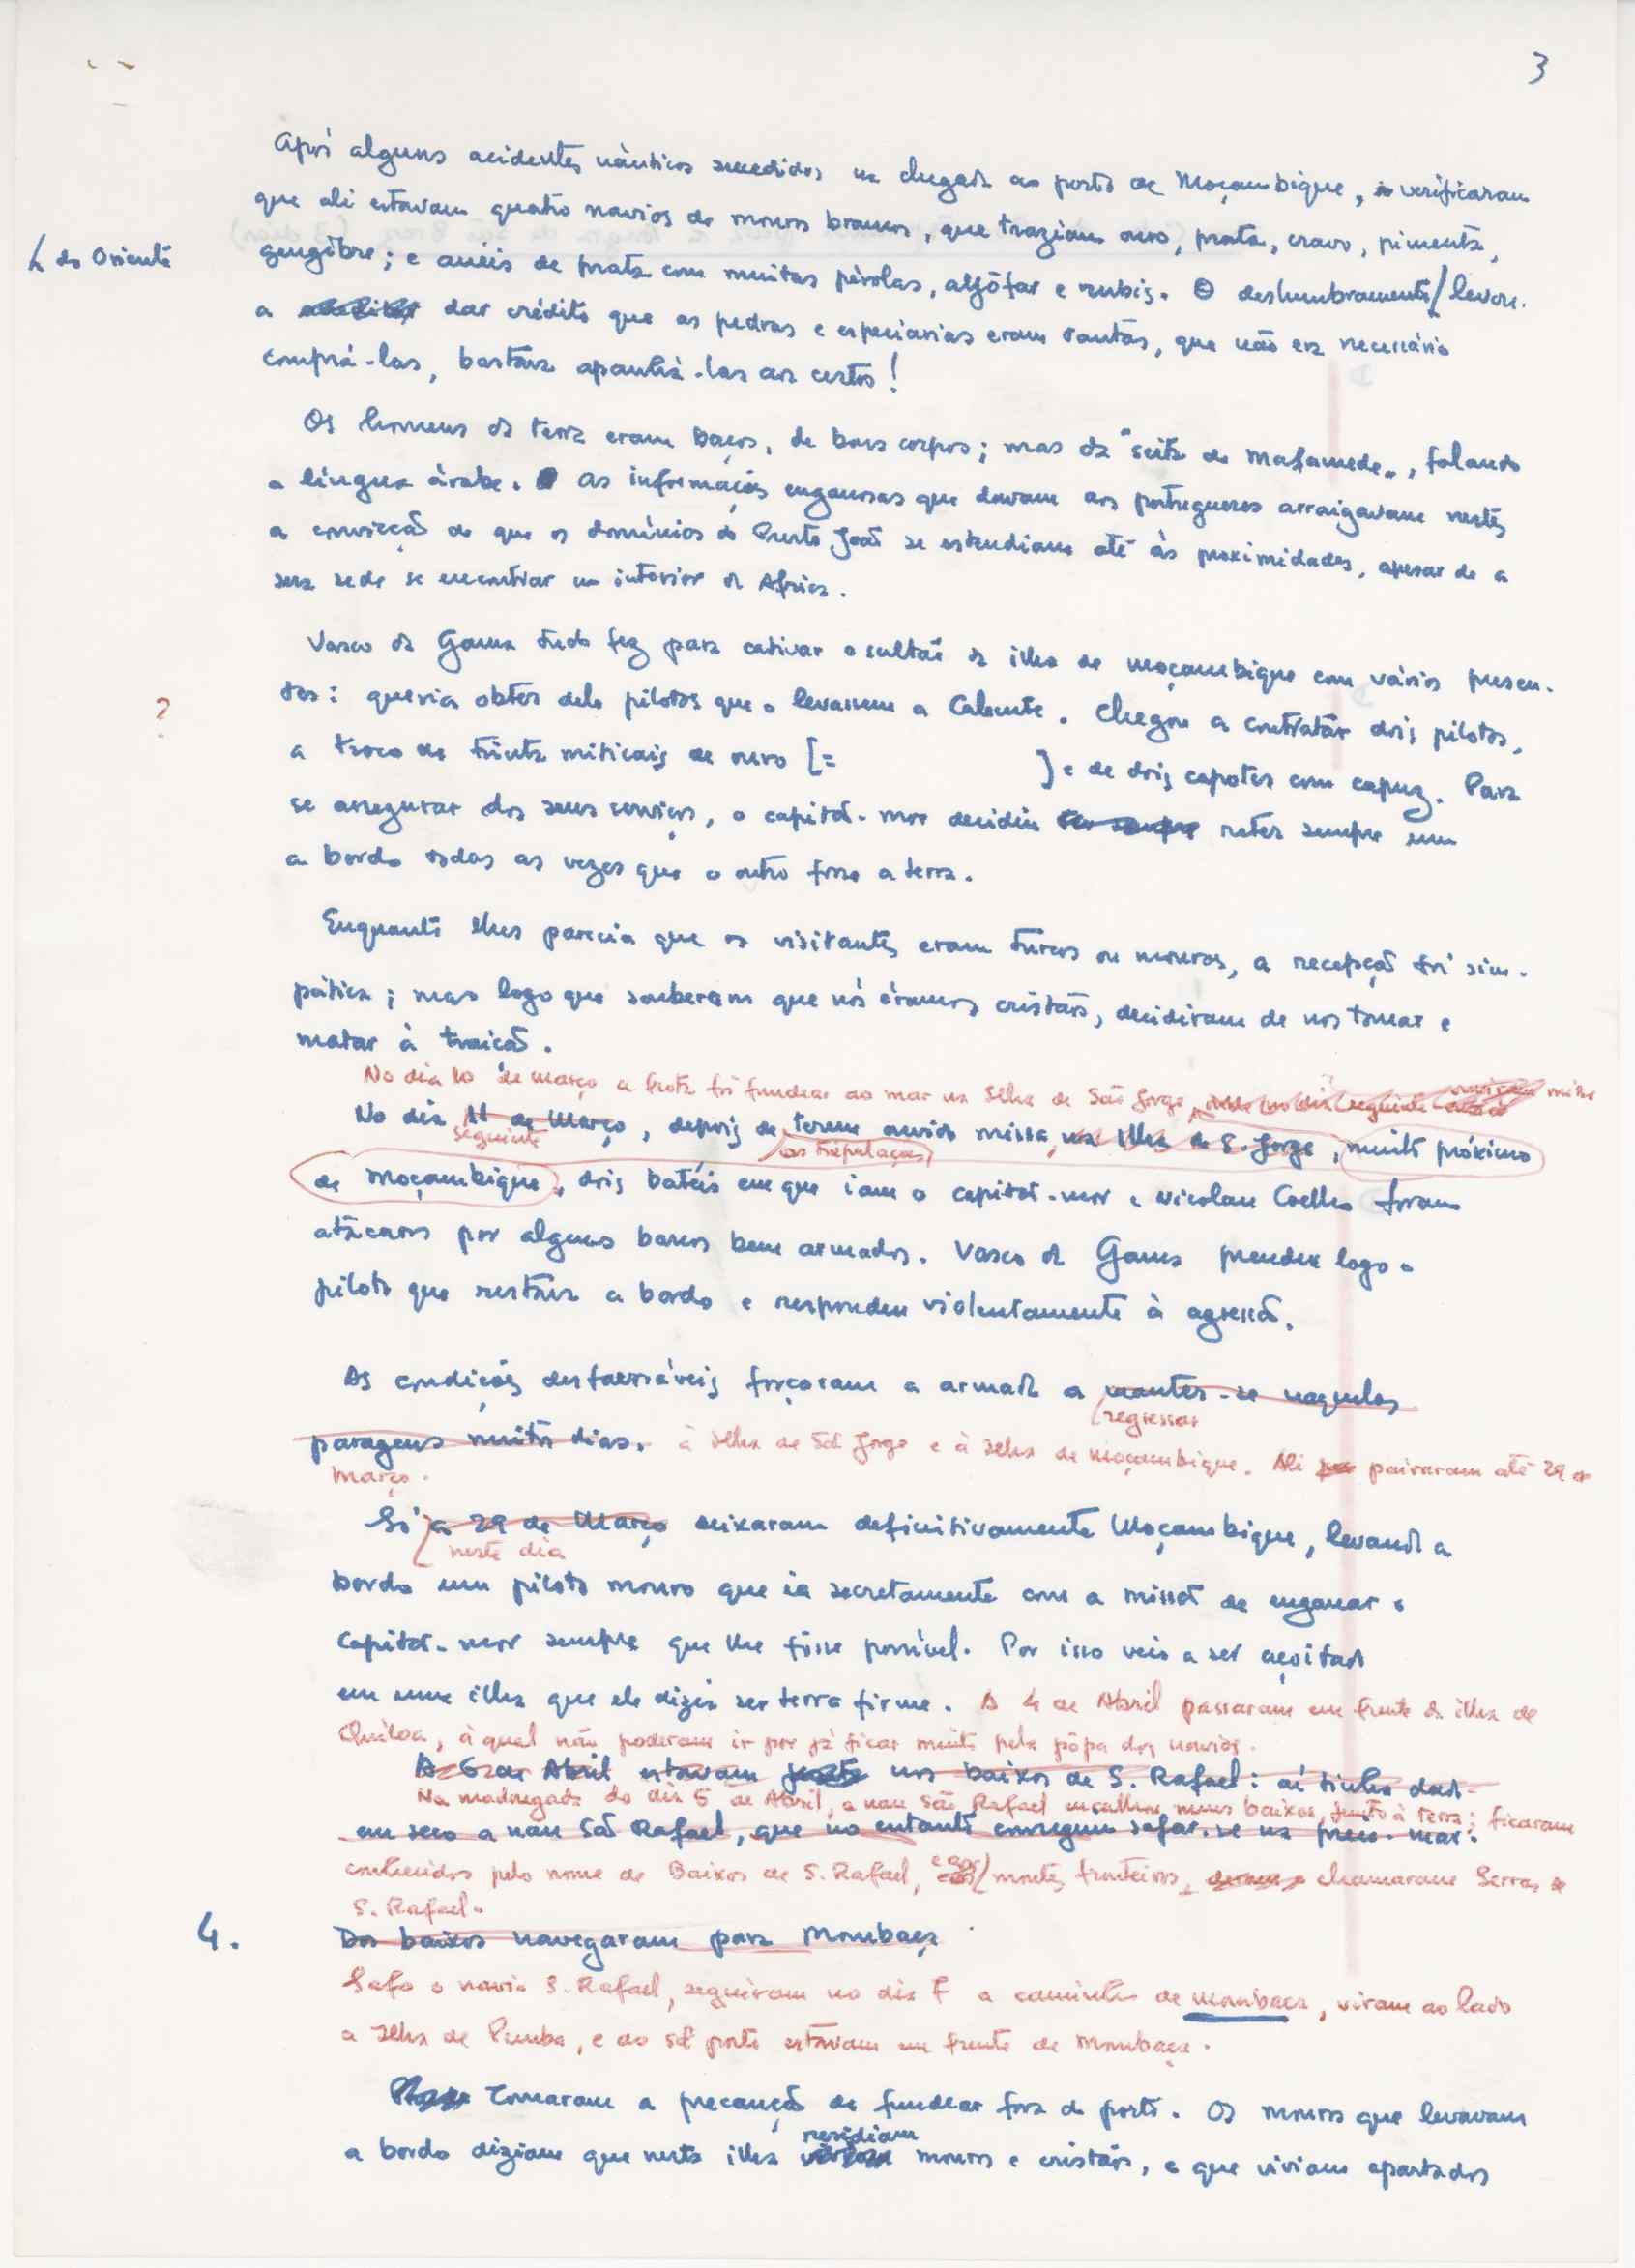 3
Após alguns acidentes náuticos sucedidos na chegada ao porto de Moçambique, verificaram
que ali estavam quatro navios de mouros brancos, que traziam ouro, prata, cravo, pimenta,
do Oriente
gengibre; e anéis de prata com muitas pérolas, aljôfar e rubis. O deslumbramento levou-
a dar crédito que as pedras e especiarias eram tantas, que não era necessário
comprá-las, bastava apanhá-las aos cestos!
Os homens da terra eram baços, de bons corpos; mas da "seita de Mafamede", falando
a língua árabe. As informações enganosas que davam aos portugueses arraigavam nestes
a convicção de que os domínios do Preste João se estendiam até às proximidades, apesar de a
sua sede se encontrar no interior da Africa.
Vasco da Gama tudo fez para cativar o sultão da ilha de Moçambique com vários presen-
tes: queria obter dele pilotos que o levassem a Calecute. Chegou a contratar dois pilotos,
?
a troco de trinta miticais de ouro [= ] e de dois capotes com capuz. Para
se assegurar dos seus serviços, o capitão-mor decidiu ter sempre reter sempre um
a bordo todas as vezes que o outro fosse a terra.
Enquanto lhes parecia que os visitantes eram turcos ou mouros, a recepção foi sim-
pática; mas logo que souberam que nós éramos cristãos, decidiram de nos tomar e
matar à traição.
No dia 10 de março a frota foi fundear ao mar na Ilha de São Jorge, onde no dia seguinte ouviram missa
No dia 11 de Março, depois de terem ouvido missa, na Ilha de S. Jorge, muito próximo
seguinte as tripulações
de Moçambique, dois batéis em que iam o capitão-mor e Nicolau Coelho foram
atacados por alguns barcos bem armados. Vasco da Gama prendeu logo o
piloto que restava a bordo e respondeu violentamente à agressão.
As condições desfavoráveis forçaram a armada a manter-se naquelas
regressar
paragens muitos dias. à Ilha de São Jorge e à Ilha de Moçambique. Ali pairaram até 29 de
março.
Só a 29 de Março deixaram definitivamente Moçambique, levando a
neste dia
bordo um piloto mouro que ia secretamente com a missão de enganar o
capitão-mor sempre que lhe fosse possível. Por isso veio a ser açoitado
em uma ilha que ele dizia ser terra firme. A 4 de Abril passaram em frente da ilha de
Quiloa, à qual não poderam ir por já ficar muito pela pôpa dos navios.
A 6 de Abril estavam junto nos baixos de S. Rafael: aí tinha dado
Na madrugada do dia 6 de Abril, a nau São Rafael encalhou nuns baixos, junto à terra; ficaram
em seco a nau São Rafael, que no entanto conseguiu safar-se na preia-mar.
conhecidos pelo nome de Baixos de S. Rafael, e aos montes fronteiros, chamaram Serras de
S. Rafael.
4. Dos baixos navegaram para Mombaça
Safo o navio S. Rafael, seguiram no dia 7 a caminho de Mombaça, viram ao lado
a Ilha de Pemba, e ao sol posto estavam em frente de Mombaça.
Tomaram a precaução de fundear fora do porto. Os mouros que levavam
residiam
a bordo diziam que nesta ilha mouros e cristãos, e que viviam apartados